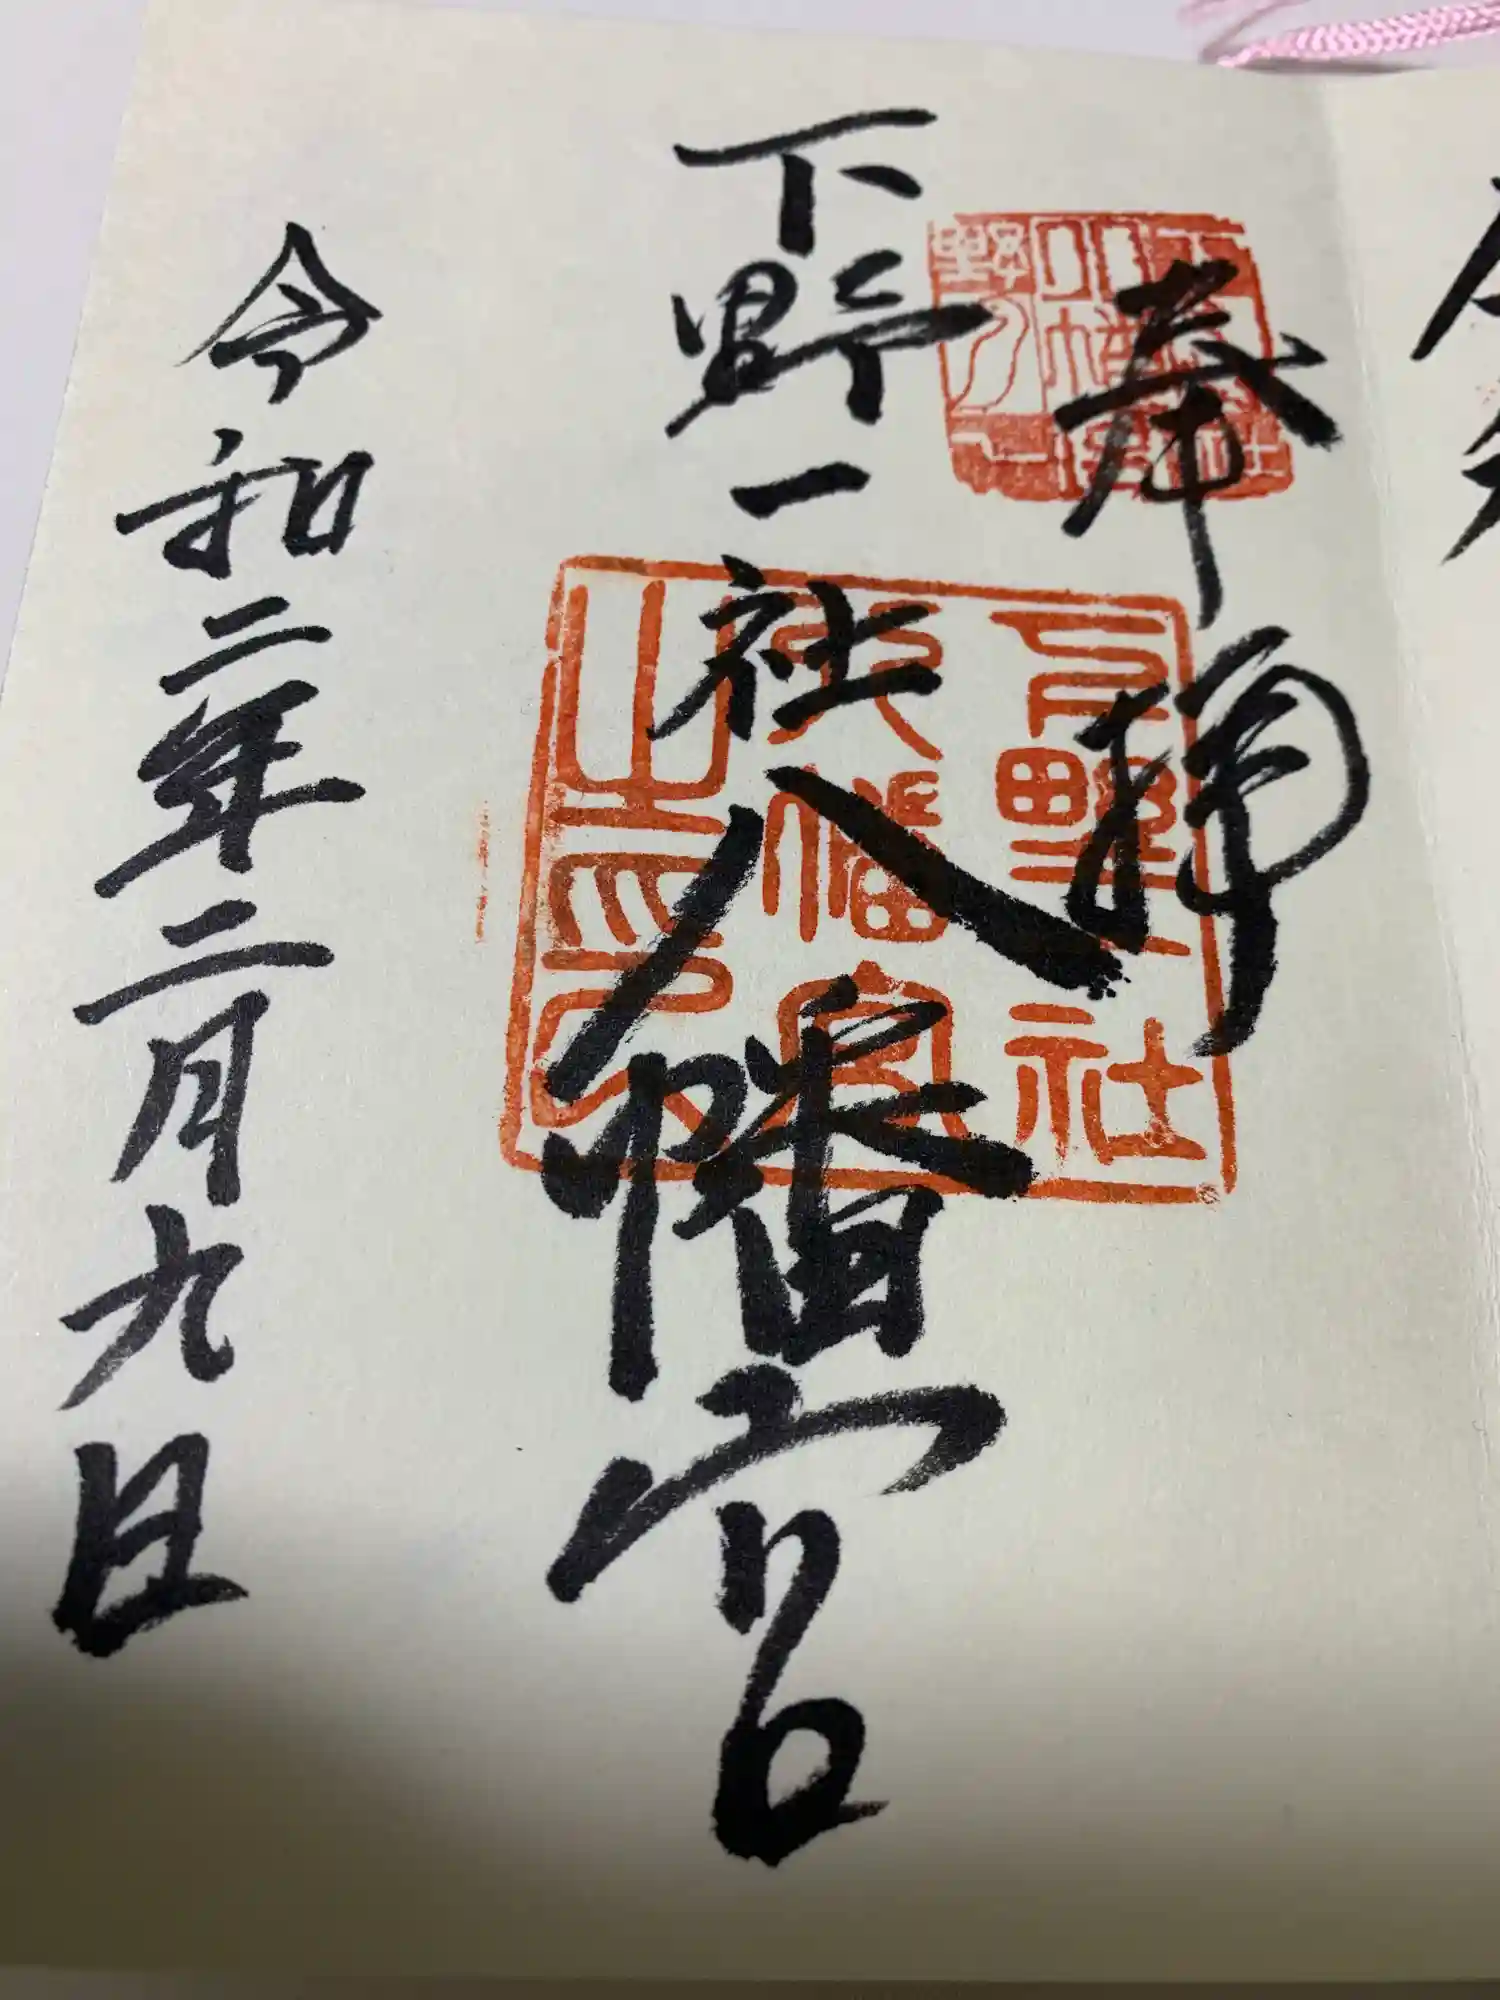 奉拝
下野一社八幡宮
下野一社
八幡宮
之印
令和二年二月九日